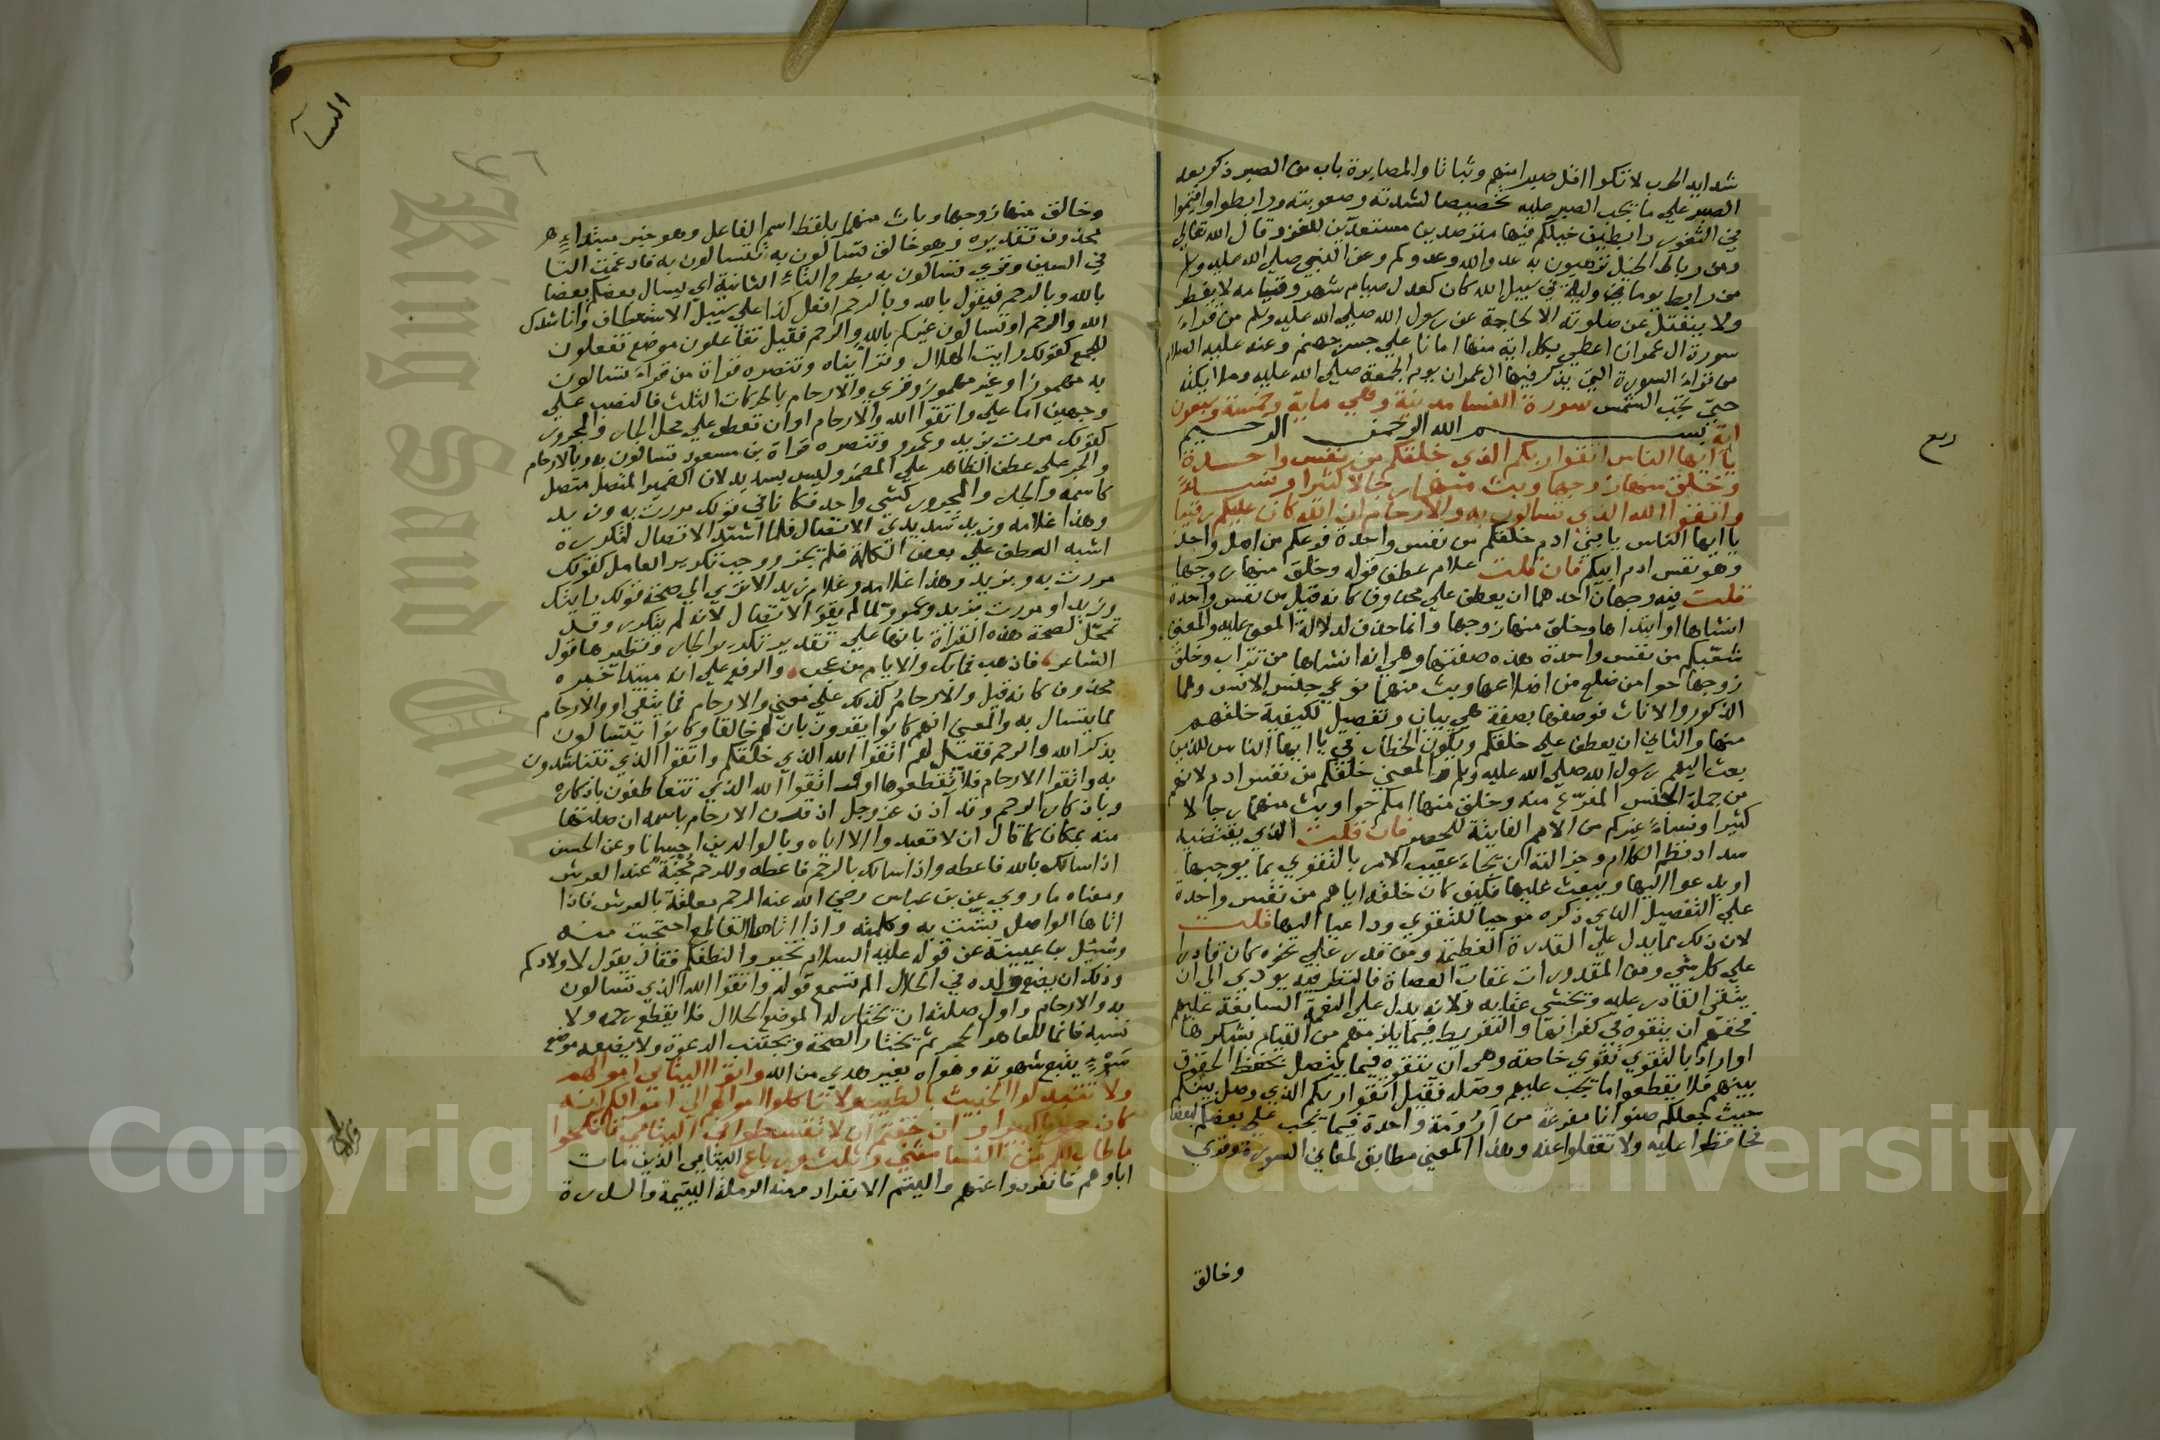 شدايد الحرب لا تكوا اقل صبرا منهم وثباتا والمصابرة باب من الصبر ذكر بعد
الصبر علي ما يجب الصبر عليه تخصيصا لشدته وصعوبته ورابطوا واقيموا
في الثغور رابطين خيلكم فيها مترصدين مستعدين للغزو قال الله تعالي
ومن رباط الخيل ترهبون به عدو الله وعدوكم وعن النبي صلي الله عليه وسلم
من رابط يوما وليلة في سبيل الله كان كعدل صيام شهر وقيامه لا يفطر
ولا ينفتل عن صلوته الا لحاجة عن رسول الله صلي الله عليه وسلم من قراء
سورة ال عمران اعطي بكل اية منها امانا علي جسر جهنم وعنه عليه السلام
من قراء السورة التي يذكر فيها ال عمران يوم الجمعة صلي الله عليه وملايكته
حتي تجب الشمس سورة النسا مدينة وهي ماية وخمسة وسبعون
اية بسم الله الرحمن الرحيم
يا ايها الناس اتقوا ربكم الذي خلقكم من نفس واحدة
وخلق منها زوجها وبث منهما رجالا كثيرا ونساء
واتقوا الله الذي تسالون به والارحام ان الله كان عليكم رقيبا
يا ايها الناس يا بني ادم خلقكم من نفس واحدة فرعكم من اصل واحد
وهو نفس ادم ابيكم فان قلت علام عطف قوله وخلق منها زوجها
قلت فيه وجهان احدهما ان يعطف علي محذوف كانه قيل من نفس واحدة
انشاها او ابتداها وخلق منها زوجها وانما حذف لدلالة المعني عليه والمعني
شعبكم من نفس واحدة هذه صفتها وهي انه انشاها من تراب وخلق
زوجها حوا من ضلع من اضلاعها وبث منهما نوعي جنس الانس وهما
الذكور والاناث فوصفها بصفة هي بيان وتفصيل لكيفية خلقهم
منها والثاني ان يعطف علي خلقكم ويكون الخطاب في يا ايها الناس للذين
بعث اليهم رسول الله صلي الله عليه وسلم والمعني خلقكم من نفس ادم لانهم
من جملة الجنس المفرع منه وخلق منها امكم حوا وبث منهما رجالا
كثيرا ونساء غيركم من الامم الفايتة للحصر فان قلت الذي يقتضيه
سداد نظم الكلام وجزالته ان يجاء عقيب الامر بالتقوي بما يوجبها
او يدعو اليها ويبعث عليها فكيف كان خلقه اياهم من نفس واحدة
علي التفصيل الذي ذكره موجبا للتقوي وداعيا اليها قلت
لان ذلك مما يدل علي القدرة العظيمة ومن قدر علي نحوه كان قادرا
علي كل شي ومن المقدورات عقاب العصاة فالنظر فيه يودي الي ان
يتقي القادر عليه ويخشي عقابه ولانه يدل علي النعمة السابغة عليهم
فحقهم ان يتقوه في كفرانها والتفريط فيما يلزمهم من القيام بشكرها
او اراد بالتقوي تقوي خاصة وهي ان يتقوه فيما يتصل بحفظ الحقوق
بينهم فلا يقطعوا ما يجب عليهم وصله فقيل اتقوا ربكم الذي وصل بينكم
حيث جعلكم صنوانا مفرعة من ارومة واحدة فيما يجب علي بعضكم لبعض
فحافظوا عليه ولا تغفلوا عنه وهذا المعني مطابق لمعاني السورة وقري
وخالق
ربع
النسآ
وخالق منها زوجها وباث منهما بلفظ اسم الفاعل وهو خبر مبتداء
محذوف تقديره وهو خالق تسالون به تتسالون به فادغمت التا
في السين وقري تسالون به بطرح التاء الثانية اي يسال بعضكم بعضا
بالله وبالرحم فيقول بالله وبالرحم افعل كذا علي سبيل الاستعطاف واناشدك
الله والرحم او تسالون غيركم بالله والرحم فقيل تفاعلون موضع تفعلون
للجمع كقولك رايت الهلال وتراينناه وتنصره قراة من قراء تسالون
به مهموزا وغير مهموز وقري والارحام بالحركات الثلث فالنصب علي
وجهين اما علي واتقوا الله والارحام او ان تعطف علي محل الجار والمجرور
كقولك مررت بزيد وعمرو وتنصره قراة بن مسعود تسالون به وبالارحام
والجر علي عطف الظاهر علي المضمر وليس بسديد لان الضمير المتصل متصل
كاسمه والجار والمجرور كشي واحد فكانا في قولك مررت به وزيد
وهذا غلامه وزيد شديدي الاتصال فلما اشتد الاتصال لتكرره
اشبه العطف علي بعض الكلمة فلم يجز ووجب تكرير العامل كقولك
مررت به وبزيد وهذا غلامه وغلام زيد الا تري الي صحة قولك رايتك
وزيدا ومررت بزيد وعمرو لما لم يقو الاتصال لانه لم يتكرر وقد
تمحل لصحة هذه القراة بانها علي تقدير تكرير الجار ونظيرها قول
الشاعر فاذهب فما بك والايام من عجب والرفع علي انه مبتدا خبره
محذوف كانه قيل والارحام كذلك علي معني والارحام مما يتقي او والارحام
مما يتسال به والمعني انهم كانوا يقرون بان لهم خالقا وكانوا يتسالون
بذكر الله والرحم فقيل لهم اتقوا الله الذي خلقكم واتقوا الذي تتناشدون
به واتقوا الارحام فلا تقطعوها او واتقوا الله الذي تتعاطفون باذكاره
وباذكار الرحم وقد آذن عز وجل اذ قرن الارحام باسمه ان صلتها
منه بمكان كما قال ان لا تعبدوا الا اياه وبالوالدين احسانا وعن الحسن
اذا سالك بالله فاعطه واذا سالك بالرحم فاعطه وللرحم حجنة عند العرش
ومعناه ما روي عن بن عباس رضي الله عنه الرحم معلقة بالعرش فاذا
اتاها الواصل بشت به وكلمته واذا اتاها القاطع احتجبت منه
وسيل بن عيينة عن قوله عليه السلام تخيروا لنطفكم فقال يقول لاولادكم
وذلك ان يضع ولده في الحلال الم تسمع قوله واتقوا الله الذي تسالون
به والارحام واول صلته ان يختار له الموضع الحلال فلا يقطع رحمه ولا
نسبه فانما للعاهر الحجر ثم يختار الصحة ويجتنب الدعوة ولا يضعه موضع
سوء يتبع شهوته وهواه بغير هدي من الله واتوا اليتامي اموالهم
ولا تتبدلوا الخبيث بالطيب ولا تاكلوا اموالهم الي اموالكم انه
كان حوبا كبيرا وان خفتم ان لا تقسطوا في اليتامي فانكحوا
ما طاب لكم من النسا مثني وثلث ورباع اليتامي الذين مات
اباوهم فانفردوا عنهم واليتم الانفراد ومنه الرملة اليتيمة والدرة
King Saud University
Copyright © King Saud University